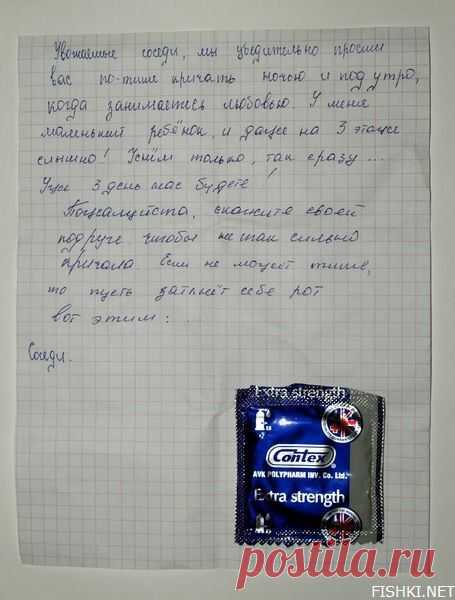 Уважаемые соседи, мы убедительно просим
вас по-тише кричать ночью и под утро,
когда занимаетесь любовью. У меня
маленький ребёнок, и даже на 3 этаже
слышно! Уснём только, так сразу ...
Уже 3 день нас будете!
Пожалуйста, скажите своей
подруге чтобы не так сильно
кричала. Если не может тише,
то пусть заткнёт себе рот
вот этим: ...
Соседи.
Extra strength
Contex®
AVK POLYPHARM INV. Co. Ltd.
Extra strength
postila.ru
FISHKI.NET